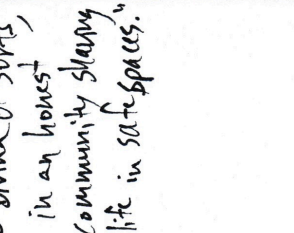 of sorts,
in an honest
community sharing
life in safe spaces."